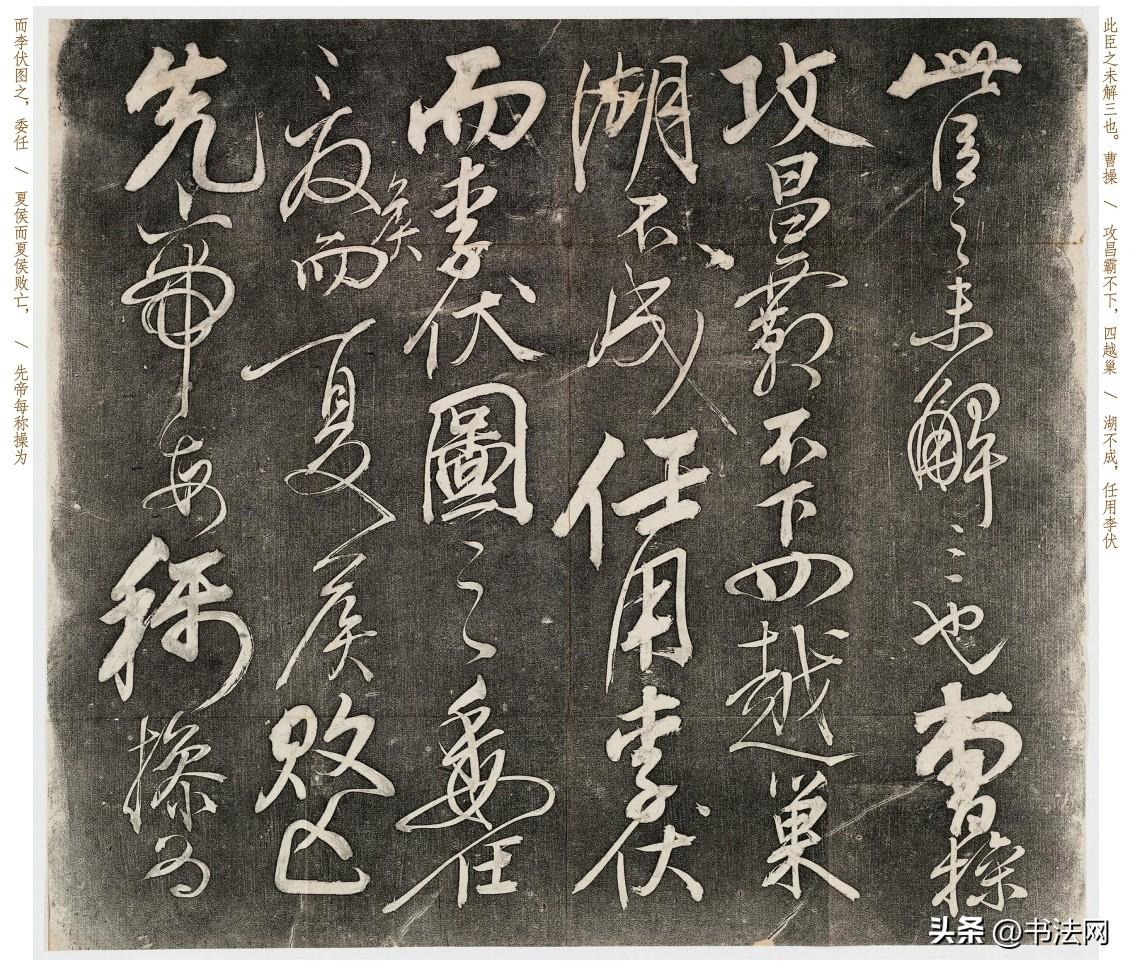 此臣之未解三也。曹操 / 攻昌霸不下，四越巢 / 湖不成，任用李伏
此臣之未解三也曹操
攻昌霸不下四越巢
湖不成任用李伏
而李伏圖之委任
夏侯而夏侯敗亡
先帝每稱操為
而李伏图之，委任 / 夏侯而夏侯败亡， / 先帝每称操为
头条 @书法网